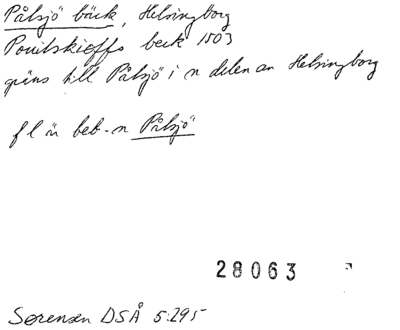 Pålsjö bäck, Helsingborg
Poulskieffs beck 1503
gräns till Pålsjö i n delen av Helsingborg
fl är beb-n Pålsjö
28063
Sørensen DSÅ 5:295